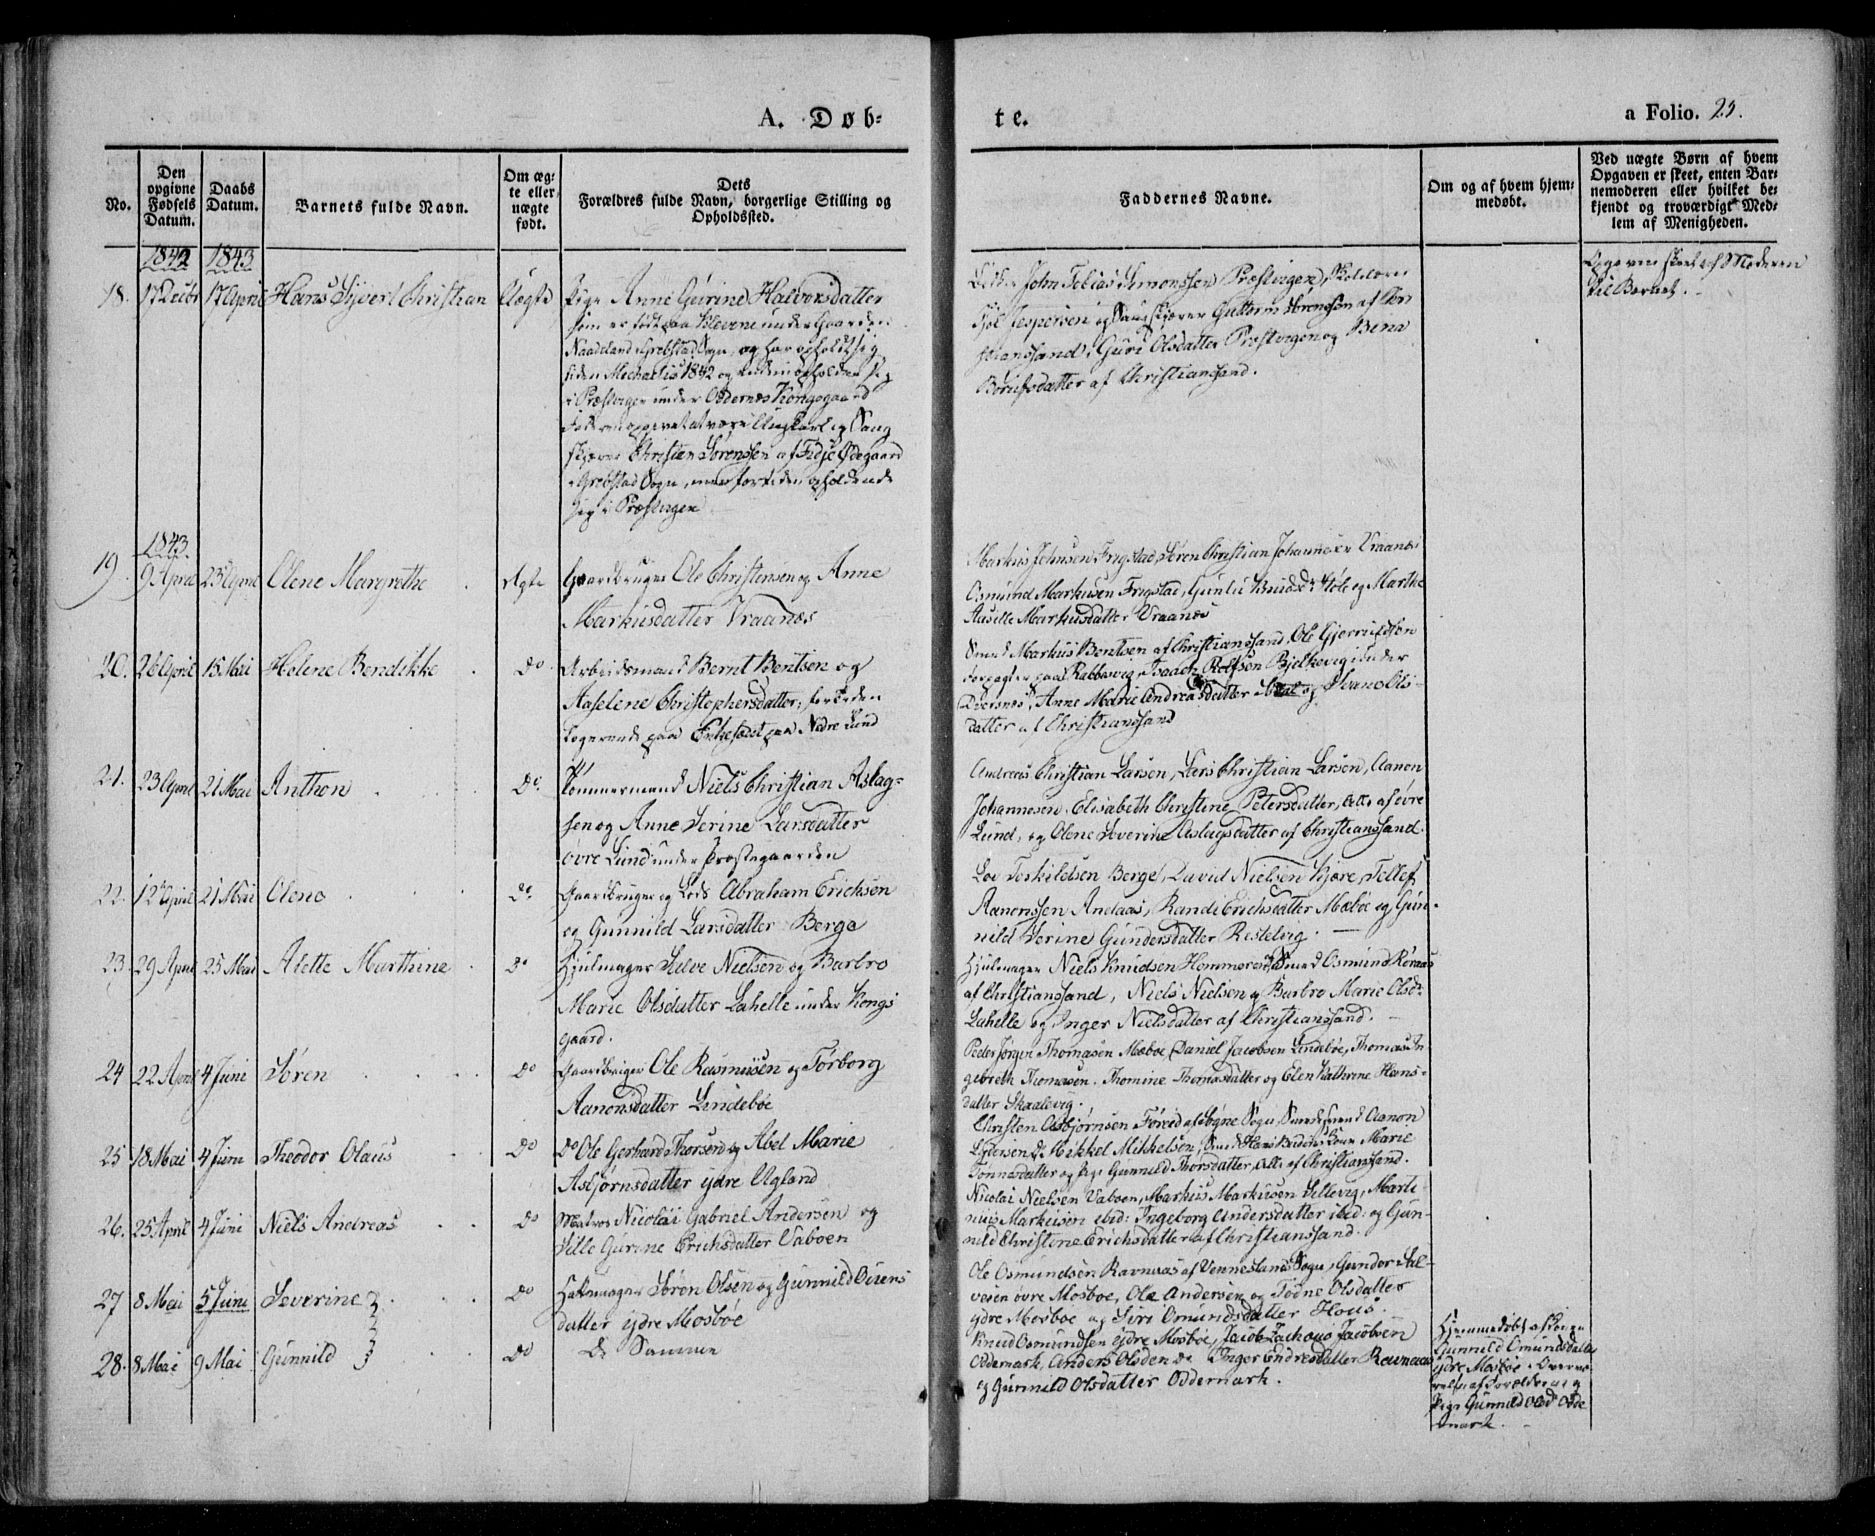 A. Døb-
te.
a Folio. 25.
No.
Den opgivne Fødsels Datum.
Daabs Datum.
Barnets fulde Navn.
Om ægte eller uægte født.
Dets
Forældres fulde Navn, borgerlige Stilling og
Opholdssted.
Faddernes Navne.
Om og af hvem hjemmedøbt.
Ved uægte Børn af hvem
Opgaven er skeet, enten Bar-
nemoderen eller hvilket be-
kjendt og troværdigt Med-
lem af Menigheden.
1842 1843
18. 17 Decbr 17 April Hans Sÿvert Christian Uægte Pige Anne Gurine Halvorsdatter
som er født paa Kleveneunder Gaarden
Naadeland i Grebstad Sogn, og har opholdt sig
siden Mechaelis 1842 og endnu opholder sig
i Præstvigen under Oddernes Kongsgaard
opgivet at være Ungkarl og Saug
skjærer Christen Sørensen af Fidje Ødegaard
i Grebstad Sogn, men for tiden opholdende
sig i Præstvigen
John Tobias Simonssen Præstvigen, Skolelærer
Jespersen og Saugskjærer Guttorm Sørensen af Chri-
stianssand, Guri Olsdatter Præstvigen og Bena
Børufsdatter af Christianssand.
Opgaven skeet af Moderen
til Barnet.
1843
19. 9 April 23 April Olene Margrethe Ægte Gaardbruger Ole Christensen og Anne
Markusdatter Vraanes
Markus Johnsen Frigstad, Søren Christian Johannesen Vraanes
Osmund Markusen Frigstad, Gunild Knudsd. Høle og Marthe
Aaselle Markusdatter Vraanes
20. 26 April 15 Mai Helene Bendikke Do Arbeidsmand Bernt Bentsen og
Aaselene Christophersdatter, for tiden
logerende paa Enkesædet paa Nedre Lund
Smed Markus Bentsen af Christianssand, Ole Gjerrufdsøn
Forpagter paa Rabbersvig, Isaach Rolfsen Bjelkevig under
Dversnes, Anne Marie Andreasdatter og Ols-
datter af Christianssand
21. 23 April 21 Mai Anthon Do Tømmermand Niels Christian Aslag-
sen og Anne Serine Larsdatter
øvre Lund under Præstegaarden
Andreas Christian Larsen, Lars Christian Larsen, Aanon
Johannesen, Elisabeth Christine Petersdatter, Alle af øvre
Lund, og Olene Severine Aslagsdatter af Christianssand.
22. 12 April 21 Mai Olene Do Gaardbruger og Lods Abraham Erichsen
og Gunnild Larsdatter Berge
Lov Terkildsen Berge, David Nielsen Kjære, Tellef
Aanonssen Andaas, Rande Erichsdatter Mæbøe og Gun-
nild Serine Gundersdatter Restelvig.
23. 29 April 25 Mai Alette Marthine Do Hjulmager Selve Nielsen og Barbro
Marie Olsdatter Lahelle under Kongs
gaard.
Hjulmager Niels Knudsen Hommeren, Smed Osmund Roraas
af Christianssand, Niels Nielsen og Barbro Marie Olsdtr
Lahelle og Inger Nielsdatter af Christianssand.
24 22 April 4 Juni Søren Do Gaardbruger Ole Rasmusen og Torborg
Aanonsdatter Lindebøe
Peder Jørgen Thomasen Mæboe, Daniel Jacobsen Lindebøe, Thomas In-
gebreth Thomasen, Thomine Thomasdatter og Elen Kathrine Hans-
datter Skaalevig.
25 18 Mai 4 Juni Theodor Olaus Do Do Ole Gerhard Thorsen og Abel Marie
Asbjørnsdatter ydre Ugland
Christen Asbjørnsen af Søgne Sogn, Smedsvend Aanon
Pedersen, do Mikkel Mikkelsen, Marie
Tønnesdatter og Pige Gunnild Thorsdatter, Alle af Christianssand.
26. 25 April 4 Juni Niels Andreas Do Matros Nicolai Gabriel Andersen og
Sille Gurine Erichsdatter Vaboen
Nicolai Nielsen Vaboen, Markus Markusen Sellevig, Marti-
nius Markusen ibid: Ingeborg Andersdatter ibid: og Gun-
nild Christine Erichsdatter af Christianssand.
27 8 Mai 5 Juni Severine Do Hatmager Søren Olsen og Gunnild Omens
datter ydre Mosbøe
Ole Osmundsen Ravnaas af Venneslands Sogn, Gundor Sal-
vesen øvre Mosboe, Ole Andersen og Tødne Olsdatter
ydre Mosboe og Siri Omundsdatter Hous.
28. 8 Mai 9 Mai Gunnild Do De Samme
Knud Osmundsen ydre Mosbøe, Jacob Zachaus Jacobsen
Oddernark, Anders Olsen do Inger Endresdatter Ravnaas
og Gunnild Olsdatter Oddernark.
Hjemmedøbt af Konen
Gunnild Omundsdatter
ydre Mosbøe i Overvæ-
relse af Forældrene og
Pige Gunnild Olsdr Odde
rnark.